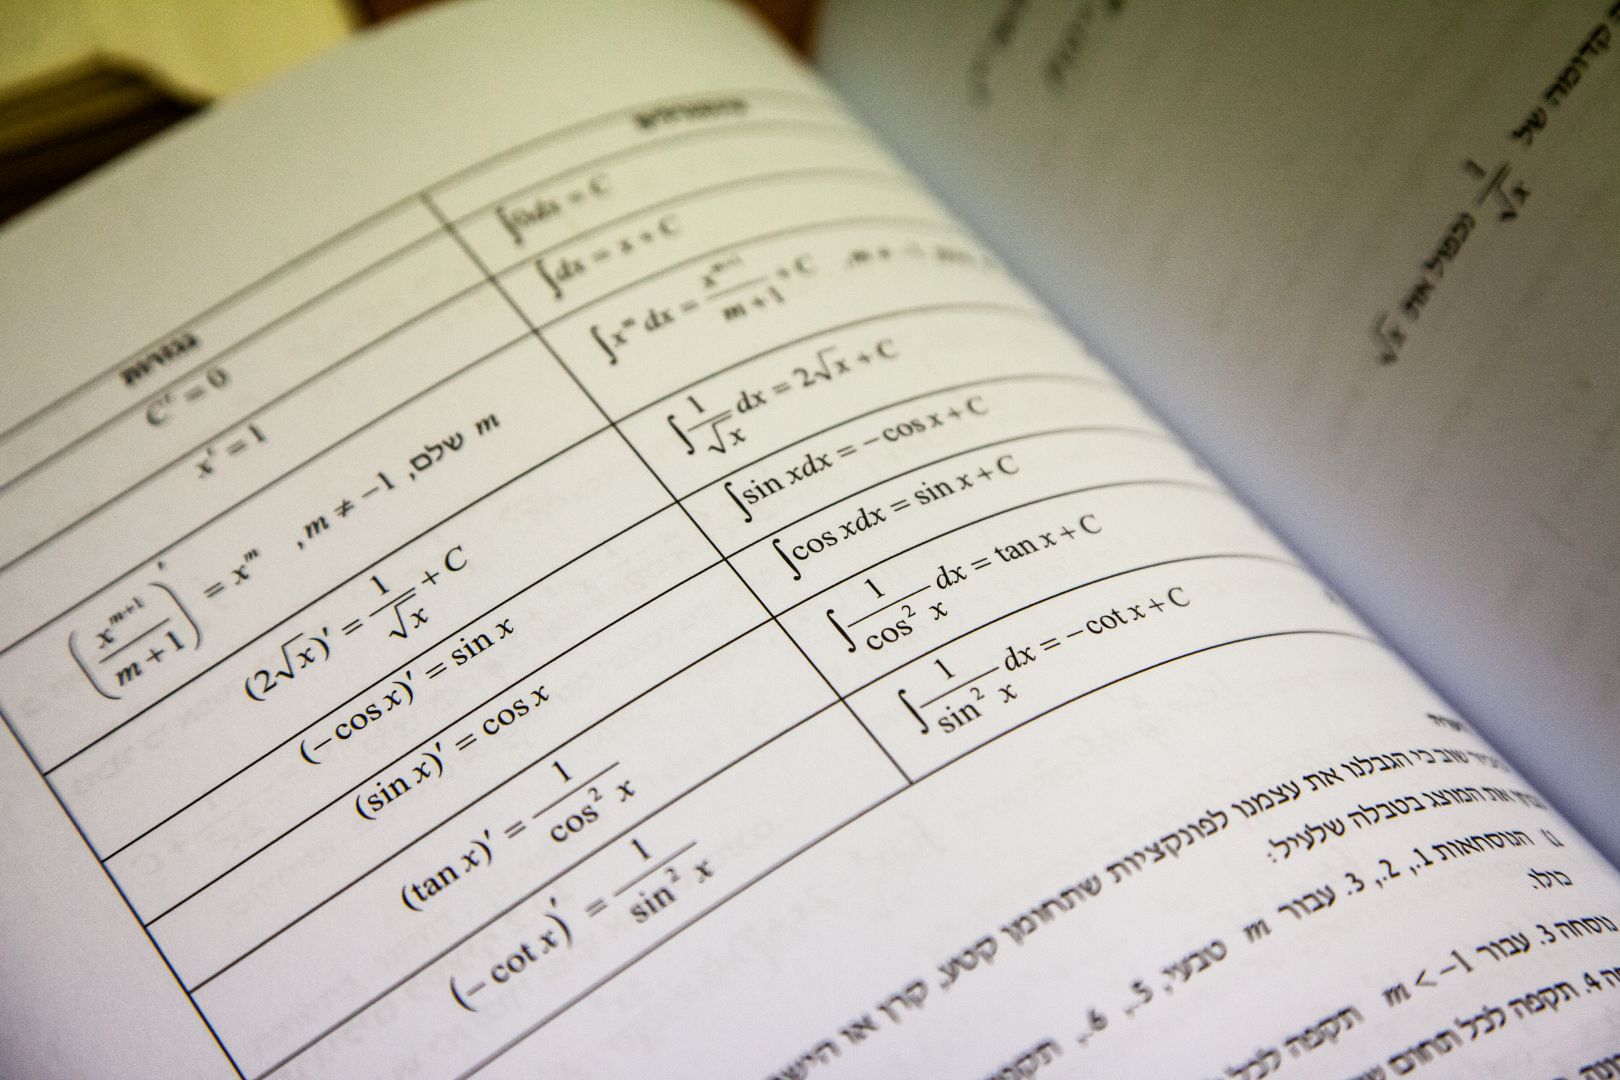 נגזרות
C′ = 0
∫0dx = C
x′ = 1
∫dx = x + C
(x^{m+1}/(m+1))′ = x^m , m ≠ −1 ,שלם m
∫x^m dx = x^{m+1}/(m+1) + C
(2√x)′ = 1/√x + C
∫1/√x dx = 2√x + C
(− cos x)′ = sin x
∫sin xdx = −cos x + C
(sin x)′ = cos x
∫cos xdx = sin x + C
(tan x)′ = 1/cos² x
∫1/cos² x dx = tan x + C
(− cot x)′ = 1/sin² x
∫1/sin² x dx = −cot x + C
שוב כי הגבלנו את עצמנו לפונקציות שתחומן קטע, קרן או
את המוצג בטבלה שלעיל:
הנוסחאות 1., 2., 3. עבור m טבעי, 5., 6.,
כולו.
נוסחה 3. עבור m < −1 תקפה לכל
4. תקפה לכל תחום
קדומה של
1/√x נכפול את √x